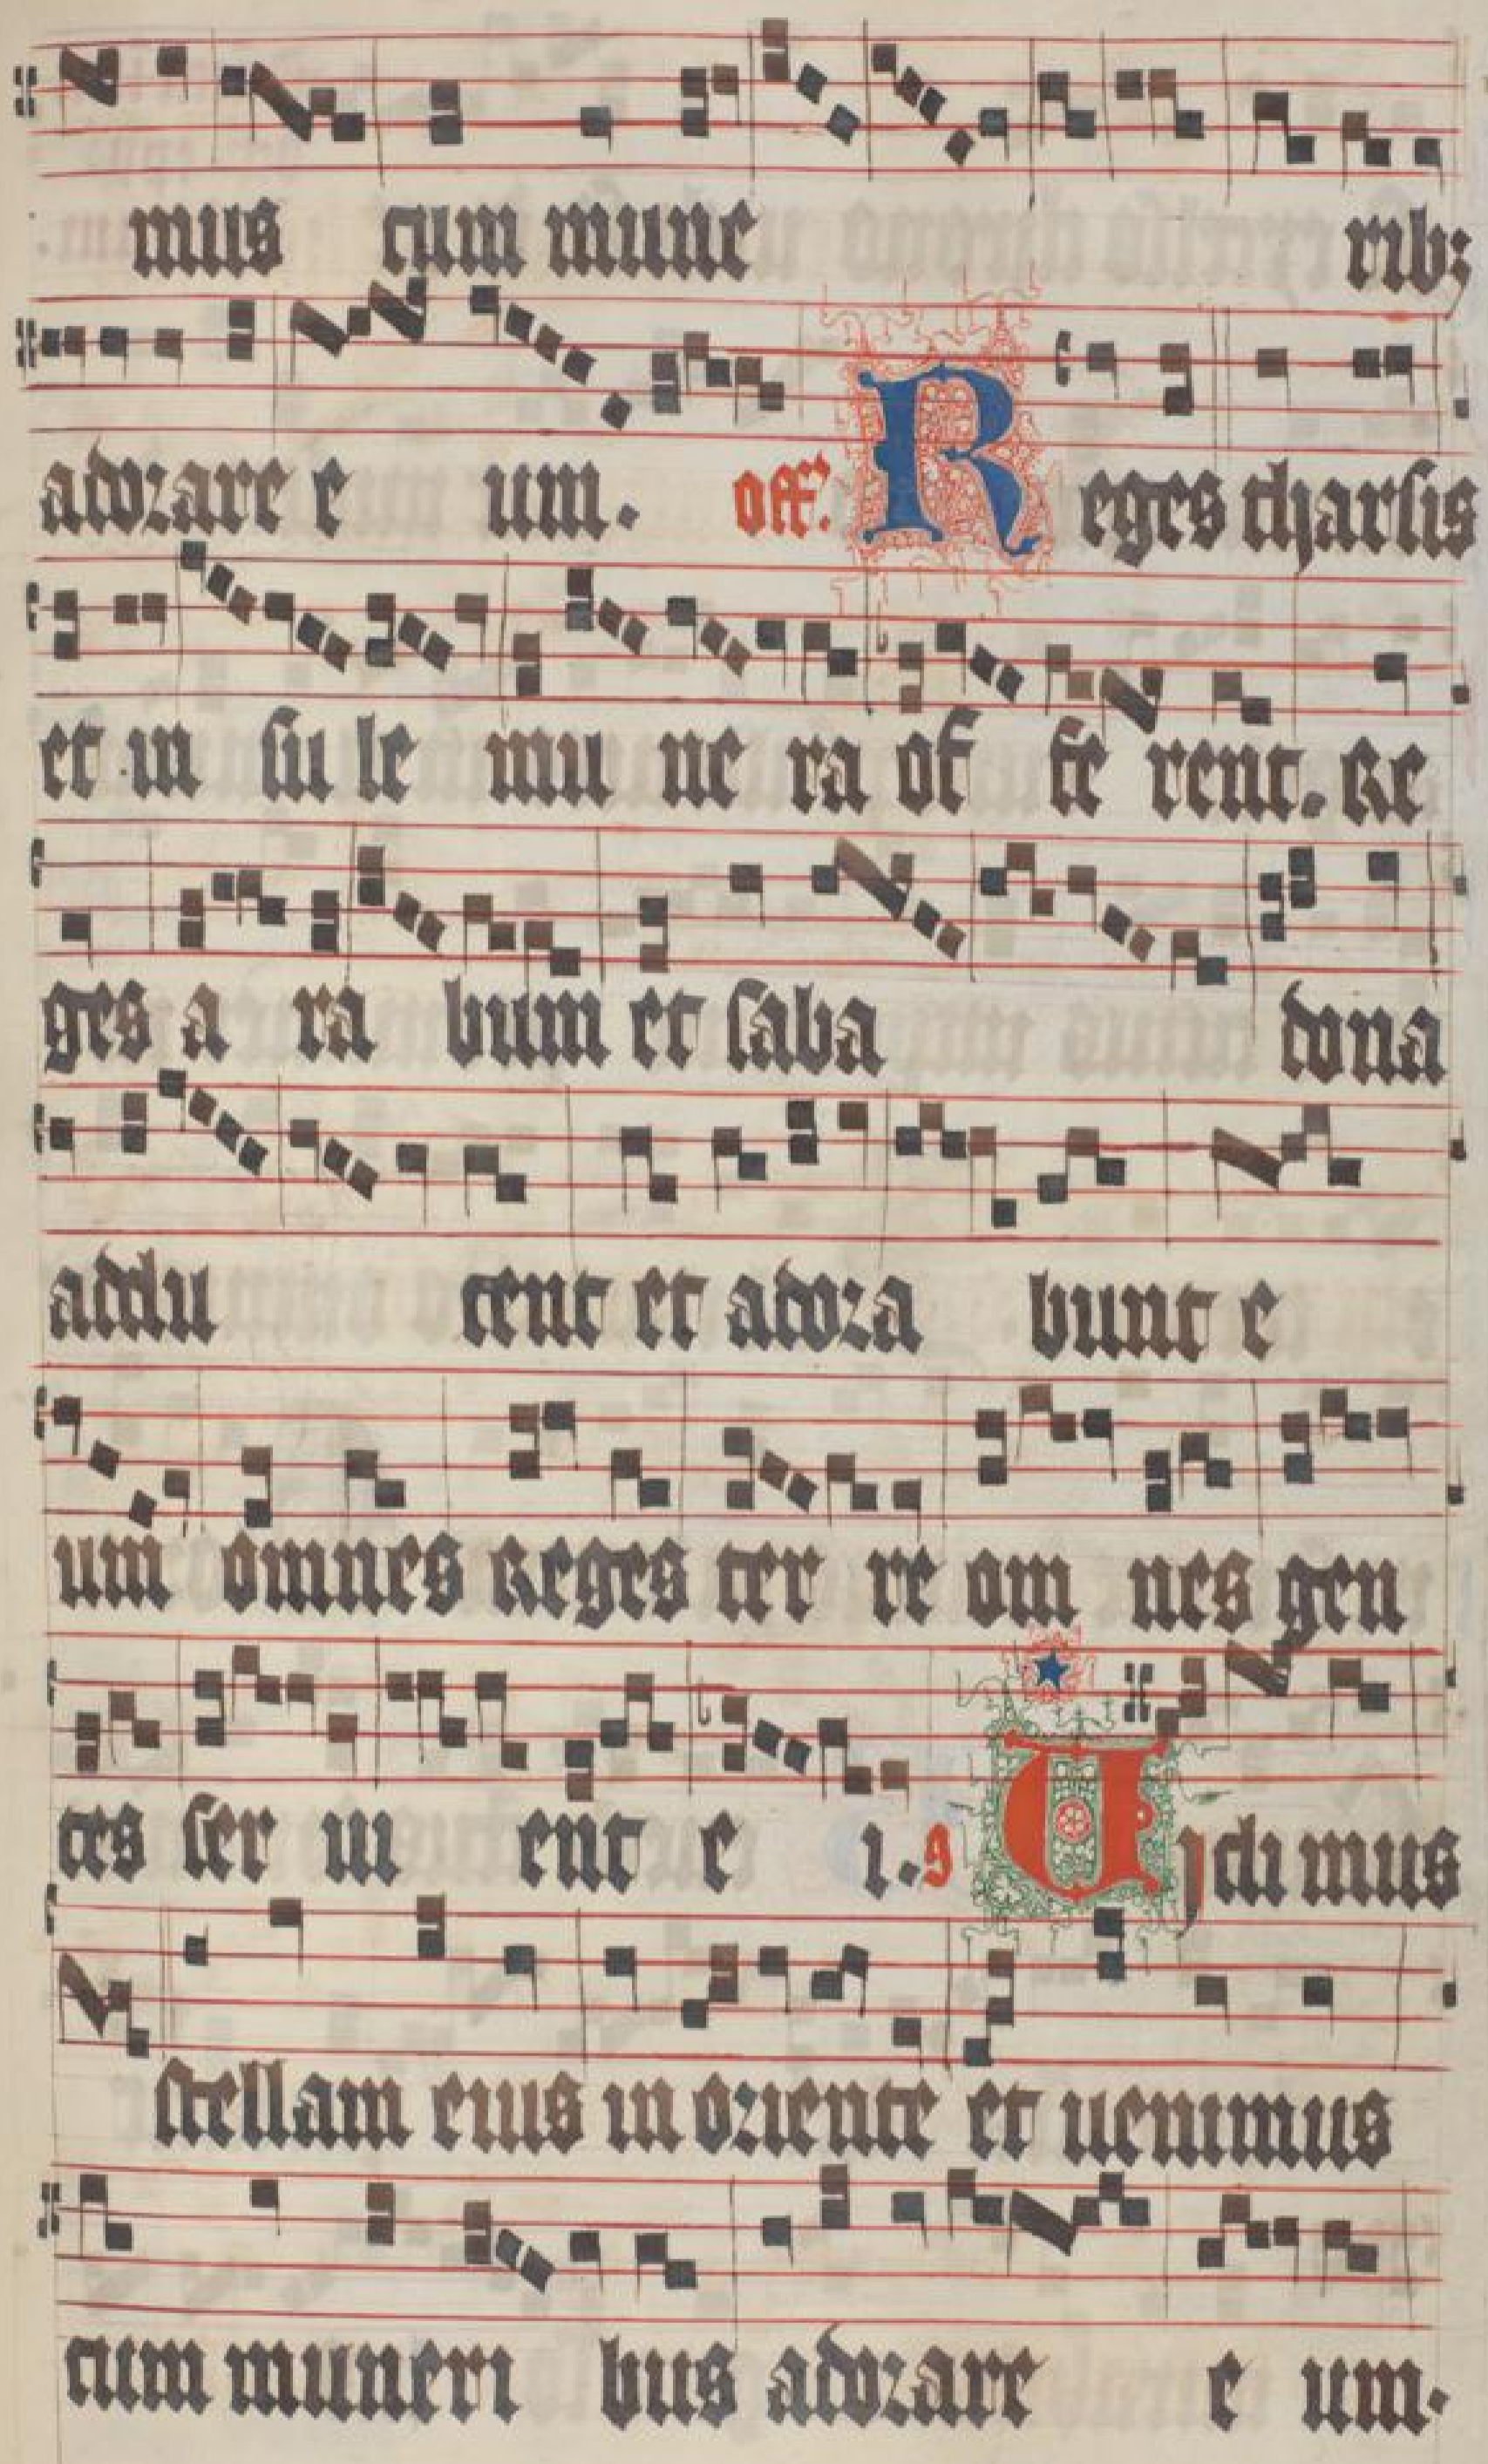 mus cum mune ribꝫ
adorare e um. off. Reges tharsis
et in su le mu ne ra of fe rent. Re
ges a ra bum et saba dona
addu cent et adora bunt e
um omnes Reges ter re om nes gen
tes ser ui ent e i. 9 Vidimus
stellam eius in oriente et uenimus
cum muneri bus adorare e um.